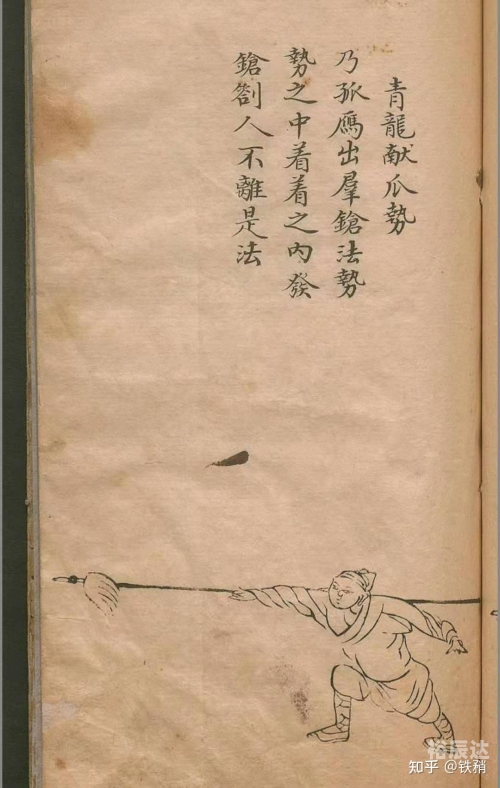 青龍献爪勢
乃孤鴈出羣鎗法勢
勢之中着着之內發
鎗劄人不離是法
裕辰达
知乎 @铁矟